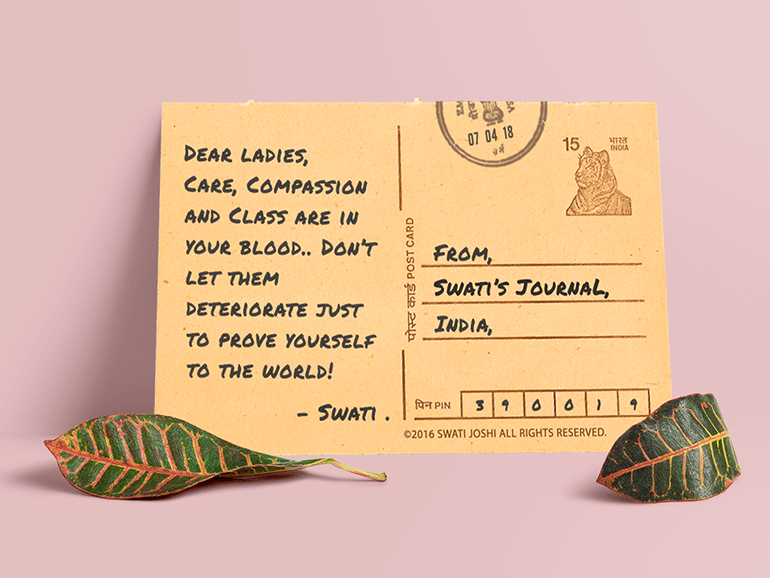 DEAR LADIES,
CARE, COMPASSION
AND CLASS ARE IN
YOUR BLOOD.. DON'T
LET THEM
DETERIORATE JUST
TO PROVE YOURSELF
TO THE WORLD!
- SWATI .
पोस्ट कार्ड POST CARD
07 04 18
15
भारत
INDIA
FROM,
SWATI'S JOURNAL,
INDIA,
पिन PIN 3 9 0 0 1 9
©2016 SWATI JOSHI ALL RIGHTS RESERVED.